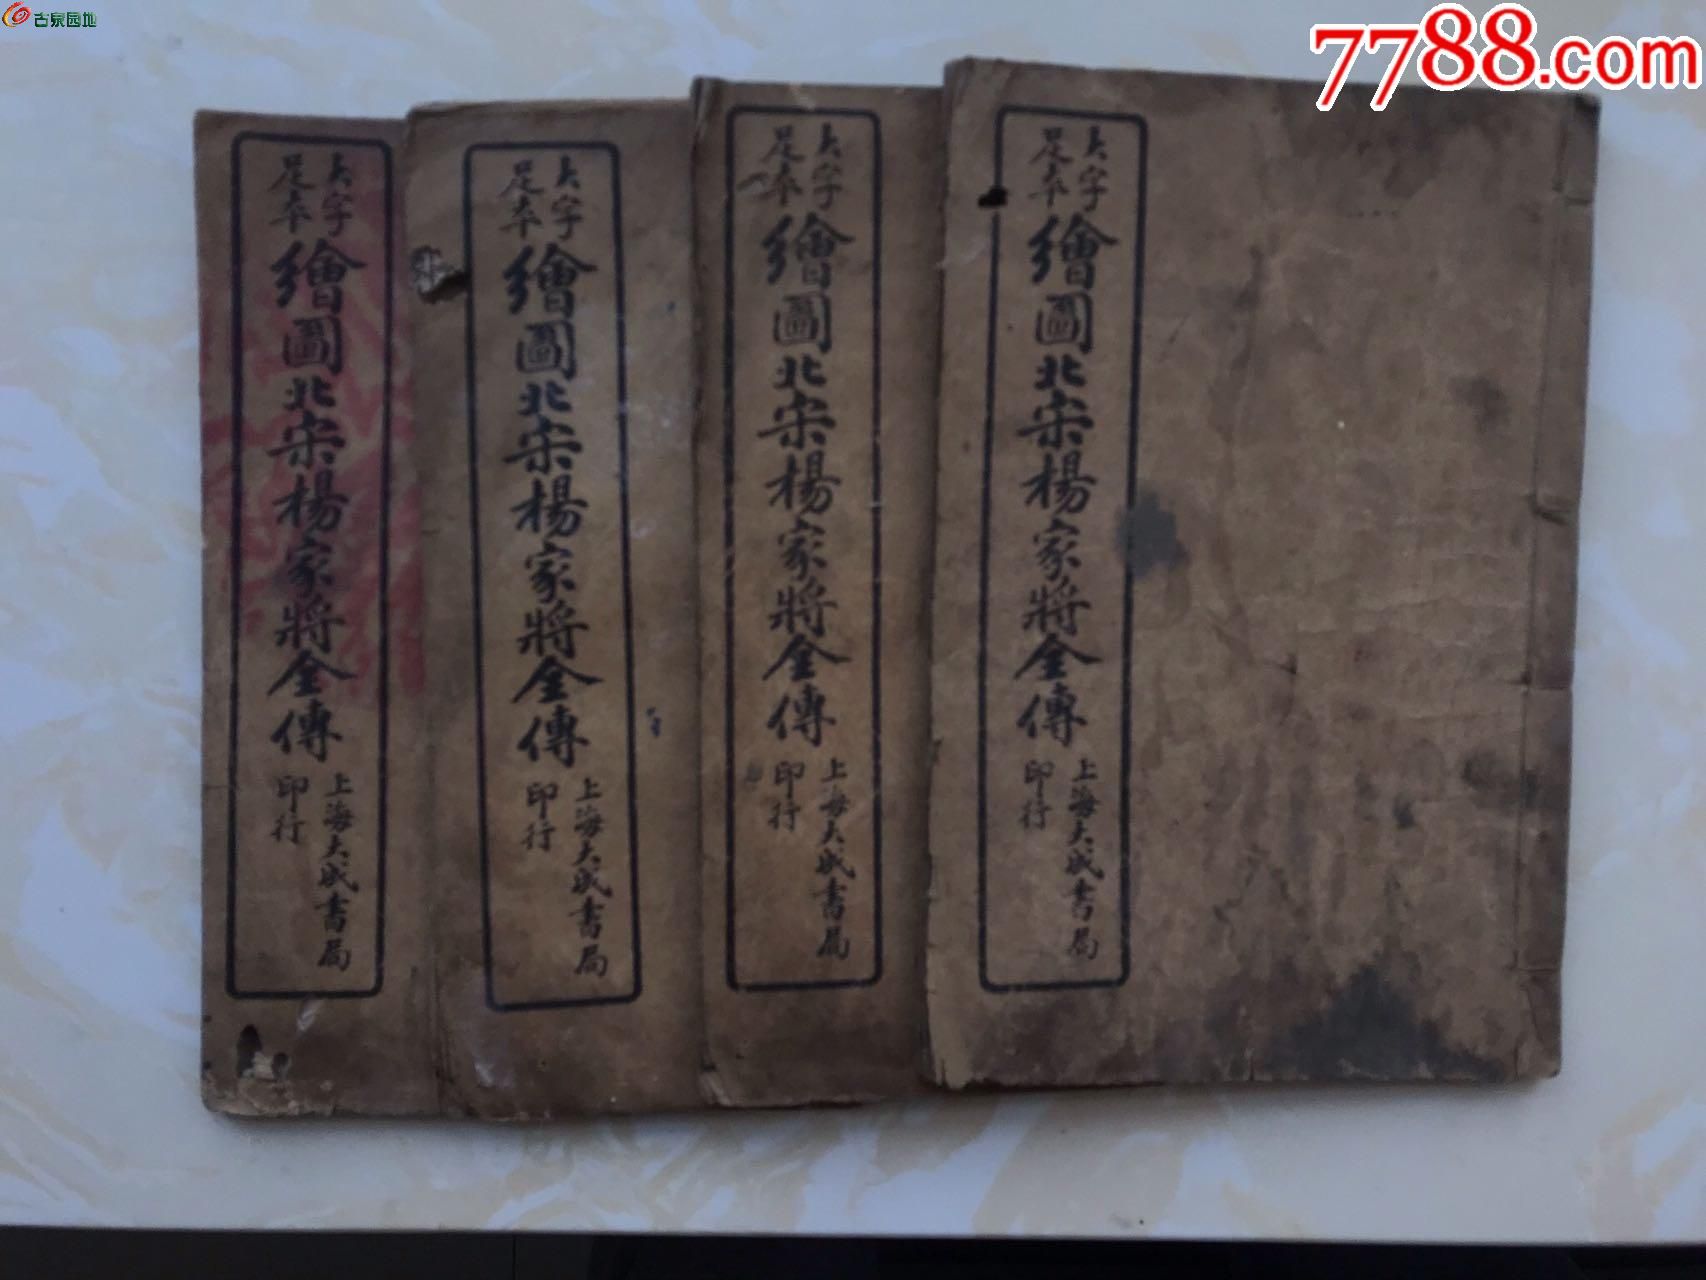 古泉园地
7788.com
大字
足本
繪圖北宋楊家將全傳
上海大成書局
印行
大字
足本
繪圖北宋楊家將全傳
上海大成書局
印行
大字
足本
繪圖北宋楊家將全傳
上海大成書局
印行
大字
足本
繪圖北宋楊家將全傳
上海大成書局
印行